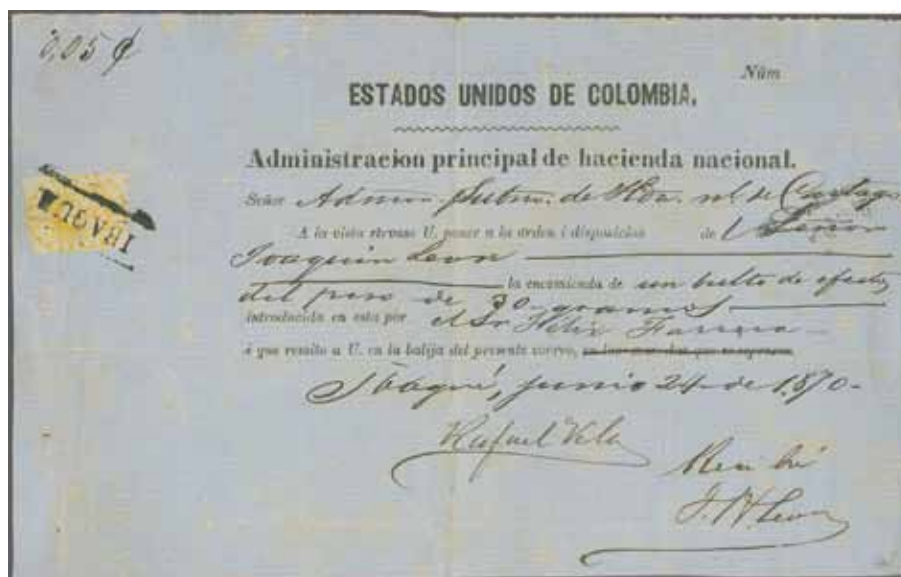 0,05 ¢
Núm
ESTADOS UNIDOS DE COLOMBIA.
Administracion principal de hacienda nacional.
IBAGUE
Señor Admor. de Hda. nl. de Cartago
A la vista sírvase U. poner a la orden i disposicion de l Señor
Joaquin Leon
la encomienda de un bulto de efectos
del peso de 30 grams
introducida en esta por el Sr Felix
i que remito a U. en la balija del presente correo,
Ibagué, junio 24 de 1870-
Rafael Vila
Recibí
J. H Leon